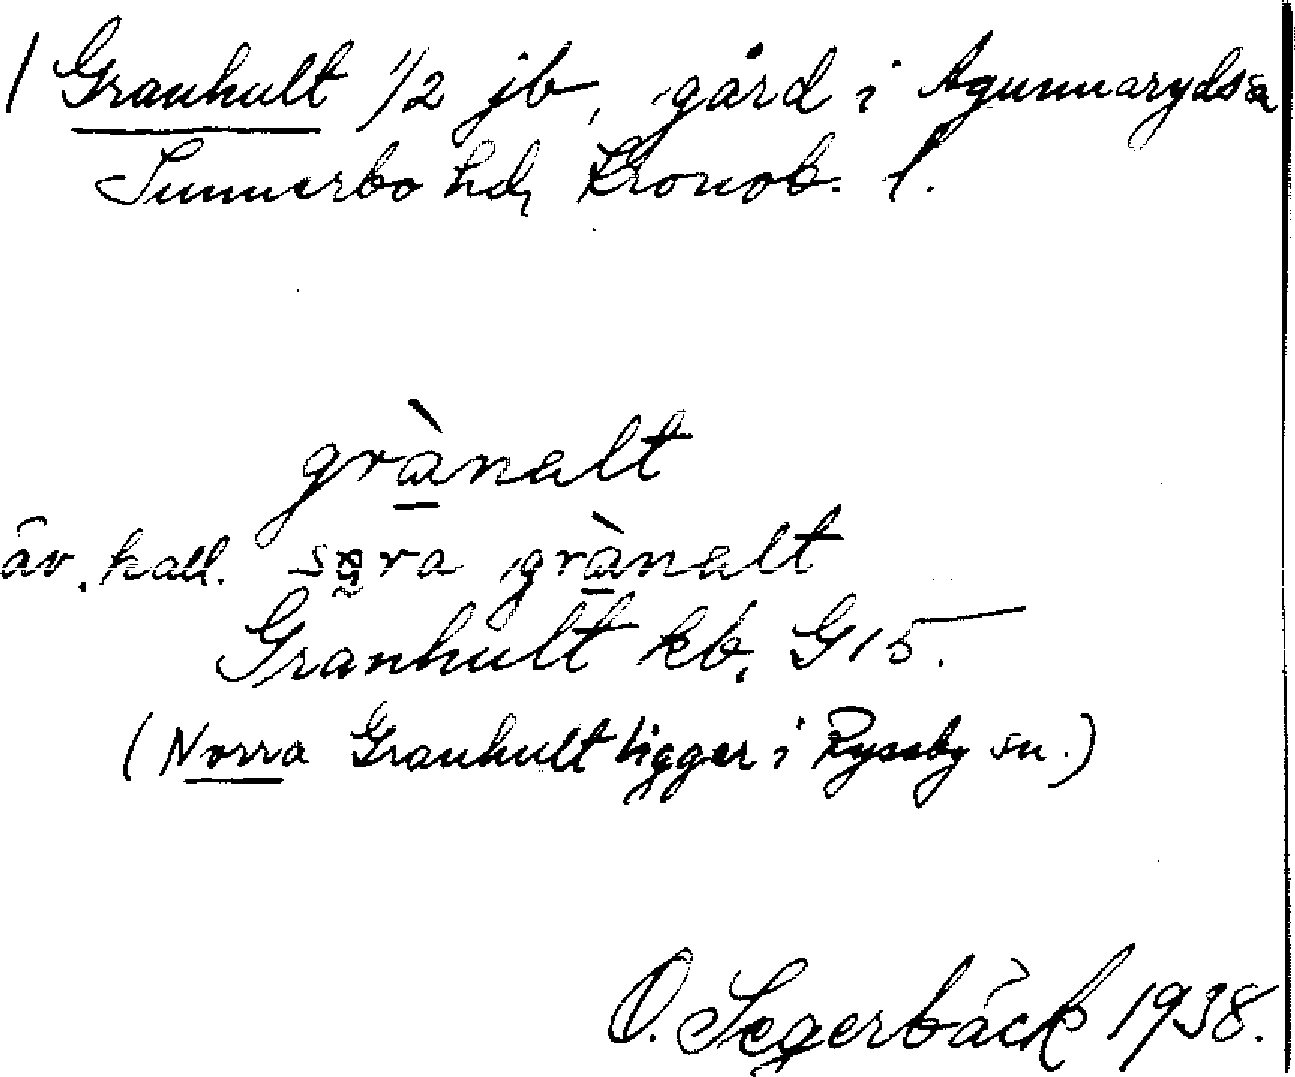 / Granhult 1/2 jb, gård i Agunnaryds sn
Sunnerbo hd, Kronob. l.
grànalt
äv. kall. sǫra grànalt
Granhult kb. G15.
(Norra Granhult ligger i Ryssby sn.)
O. Segerbäck 1938.